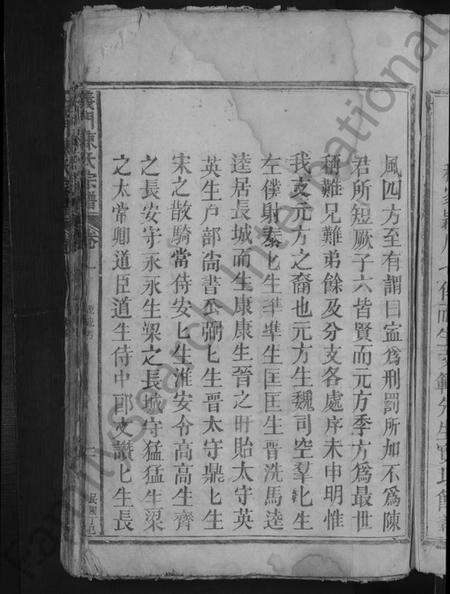 風四方至有謂曰寍爲刑罰所加不爲陳
君所短厥子六皆賢而元方季方爲最世
稱難兄難弟餘及分支各處序未申明惟
我支元方之裔也元方生魏司空羣匕生
左僕射泰匕生準準生匡匡生晉洗馬逵
逵居長城而生康康生晉之盱眙太守英
英生户部尙書公弼匕生晉太守鼎匕生
宋之散騎常侍安匕生淮安令高高生齊
之長安守永永生梁之長城守猛猛生梁
之太常卿道臣道生侍中郎文讓匕生長
義門陳氏宗譜 卷
FamilySearch International